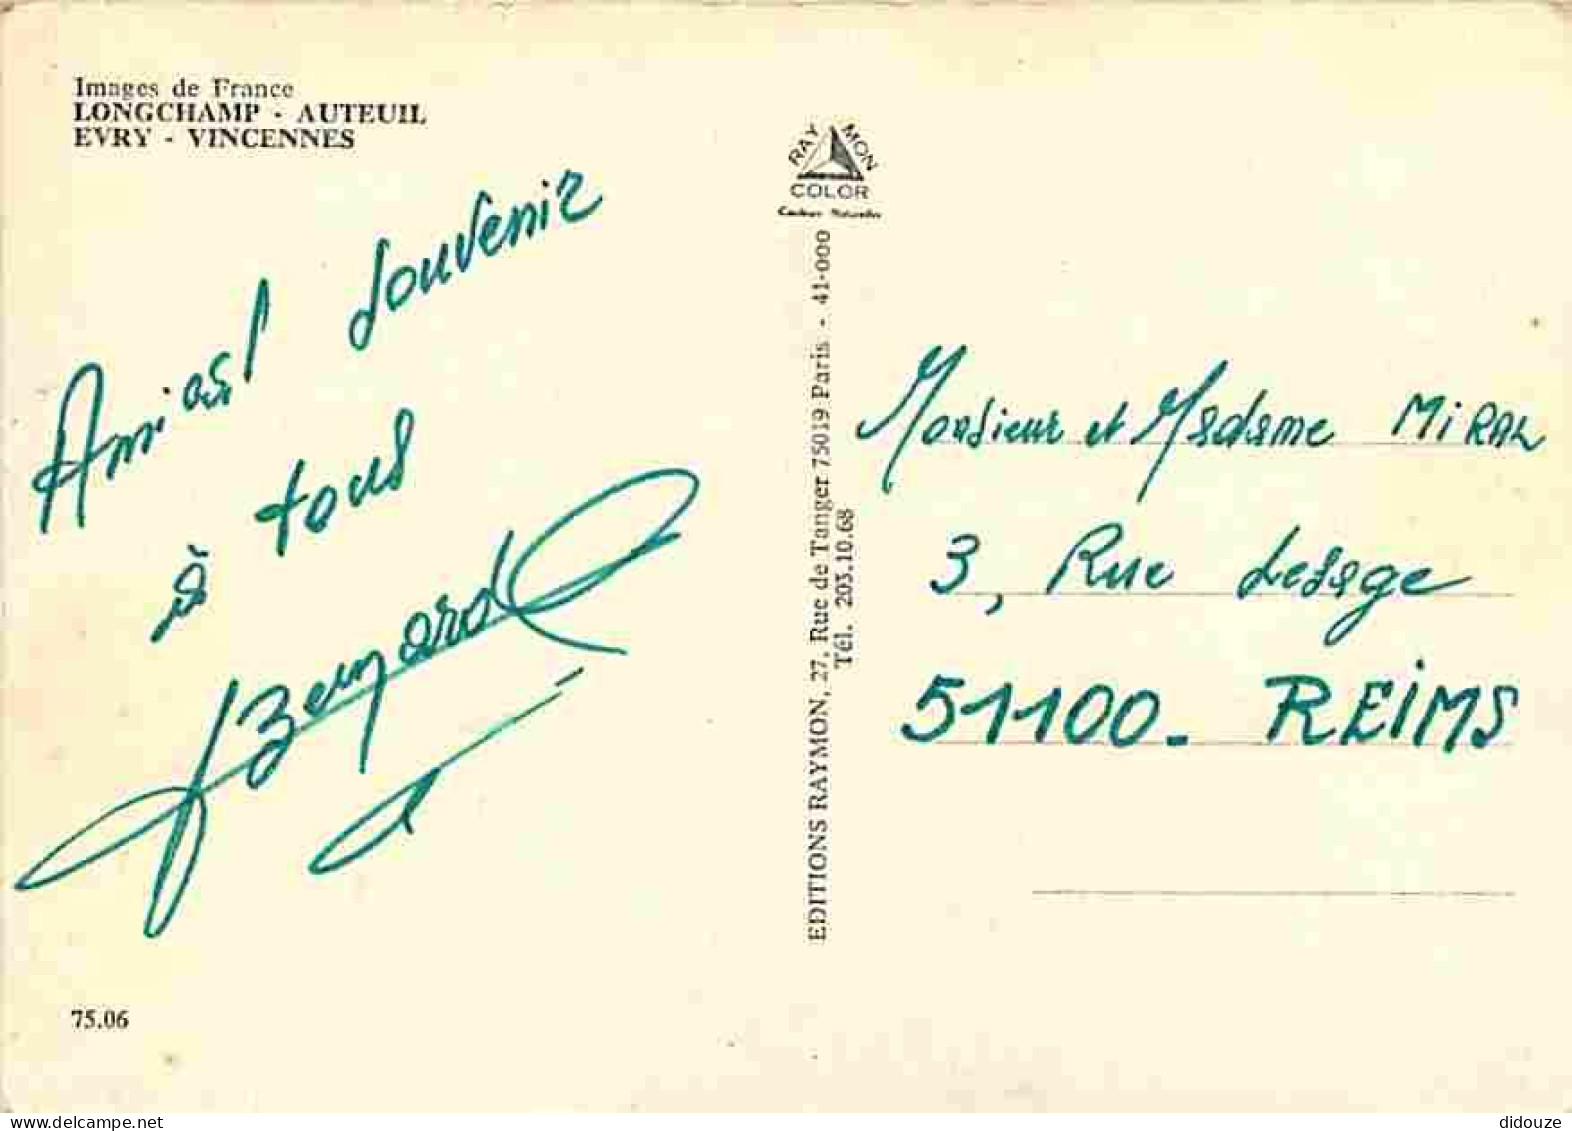 Images de France
LONGCHAMP - AUTEUIL
EVRY - VINCENNES
Amical souvenir
à tous
Bernard
75.06
RAYMON
COLOR
Couleurs Naturelles
EDITIONS RAYMON, 27, Rue de Tanger 75019 Paris - 41-000
Tél. 203.10.68
Monsieur et Madame MiRAL
3, Rue Lesage
51100 - REiMS
delcampe.net
didouze